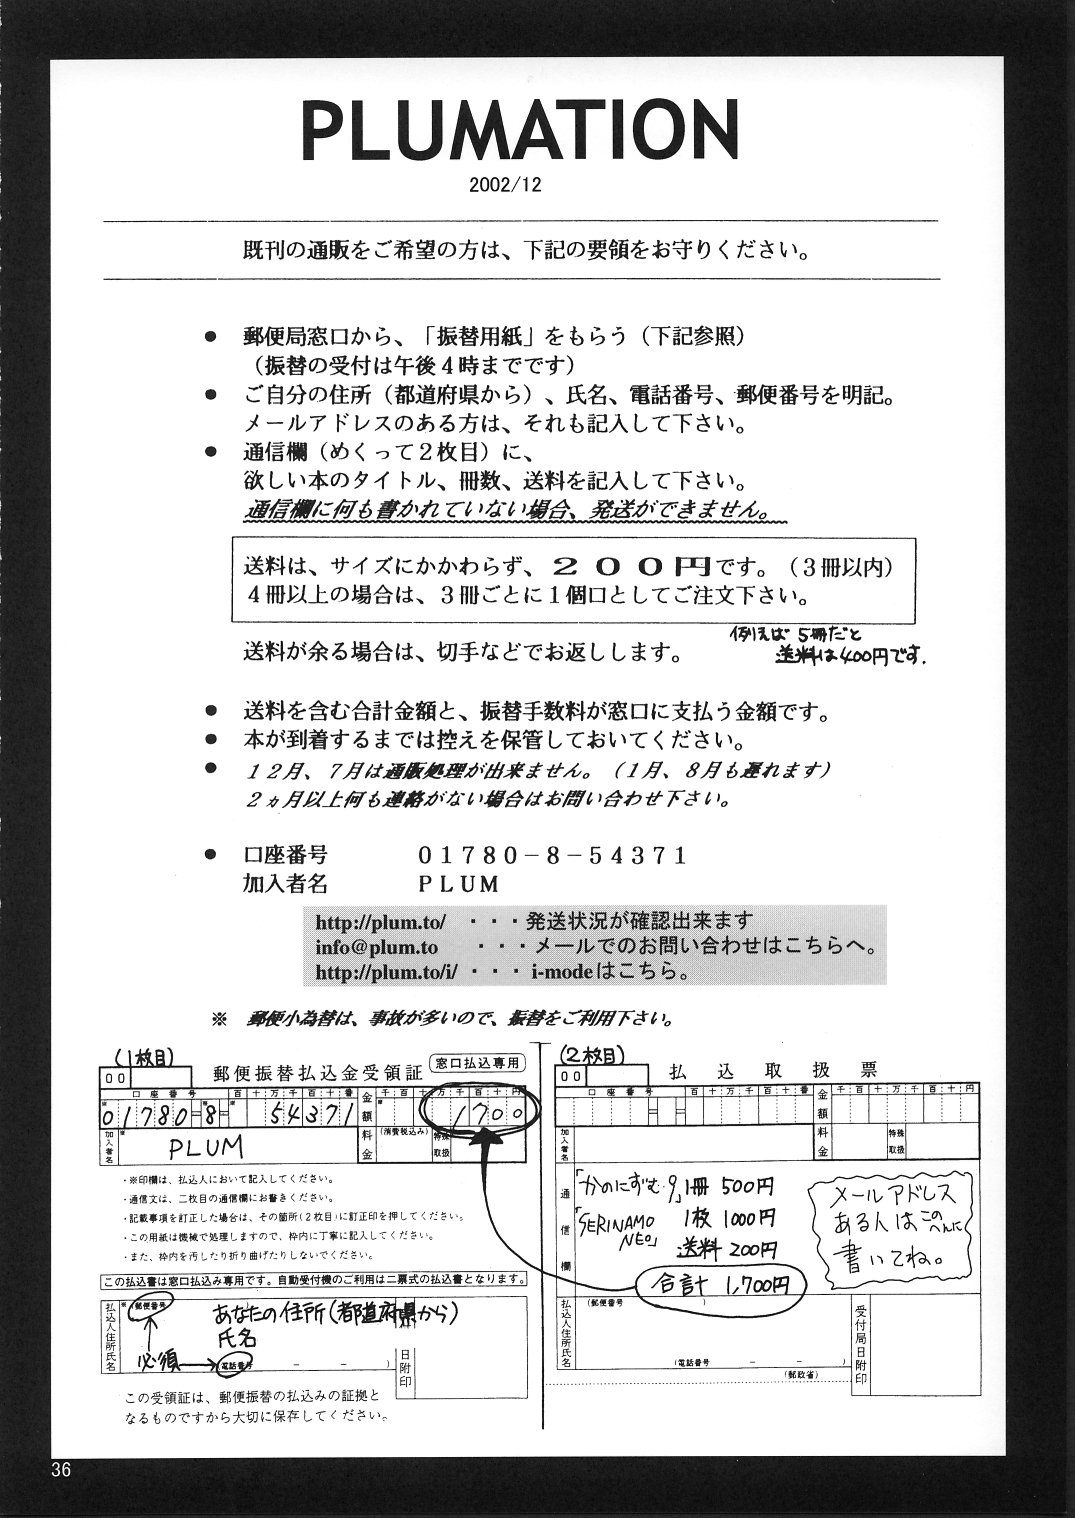 PLUMATION
2002/12
既刊の通販をご希望の方は、下記の要領をお守りください。
● 郵便局窓口から、「振替用紙」をもらう（下記参照）
（振替の受付は午後４時までです）
● ご自分の住所（都道府県から）、氏名、電話番号、郵便番号を明記。
メールアドレスのある方は、それも記入して下さい。
● 通信欄（めくって２枚目）に、
欲しい本のタイトル、冊数、送料を記入して下さい。
通信欄に何も書かれていない場合、発送ができません。
送料は、サイズにかかわらず、２００円です。（３冊以内）
４冊以上の場合は、３冊ごとに１個口としてご注文下さい。
例えば 5冊だと
送料は400円です.
送料が余る場合は、切手などでお返しします。
● 送料を含む合計金額と、振替手数料が窓口に支払う金額です。
● 本が到着するまでは控えを保管しておいてください。
● １２月、７月は通販処理が出来ません。（１月、８月も遅れます）
２ヵ月以上何も連絡がない場合はお問い合わせ下さい。
● 口座番号 ０１７８０－８－５４３７１
加入者名 ＰＬＵＭ
http://plum.to/ ・・・発送状況が確認出来ます
info@plum.to ・・・メールでのお問い合わせはこちらへ。
http://plum.to/i/ ・・・ i-modeはこちら。
※ 郵便小為替は、事故が多いので、振替をご利用下さい。
(1枚目)
00
郵便振替払込金受領証
窓口払込専用
口座番号 百十万千百十番
01780-8- 54371
金額
千百十万千百十円
1700
加入者名
PLUM
料金
(消費税込み)
特殊取扱
・※印欄は、払込人において記入してください。
・通信文は、二枚目の通信欄にお書きください。
・記載事項を訂正した場合は、その箇所(２枚目)に訂正印を押してください。
・この用紙は機械で処理しますので、枠内に丁寧に記入してください。
・また、枠内を汚したり折り曲げたりしないでください。
この払込書は窓口払込み専用です。自動受付機のご利用は二票式の払込書となります。
払込人住所氏名
郵便番号
あなたの住所(都道府県から)
氏名
必須
(電話番号 － － )
日附印
この受領証は、郵便振替の払込みの証拠と
なるものですから大切に保存してください。
(2枚目)
00
払込取扱票
口座番号 百十万千百十番
金額
千百十万千百十円
加入者名
料金
特殊取扱
通信欄
「かのにずむ・9」1冊 500円
「SERINAMO NEO」 1枚 1000円
送料 200円
合計 1,700円
メールアドレス
ある人はこのへんに
書いてね。
払込人住所氏名
(郵便番号 )
(電話番号 － － )
(郵政省)
受付局日附印
36